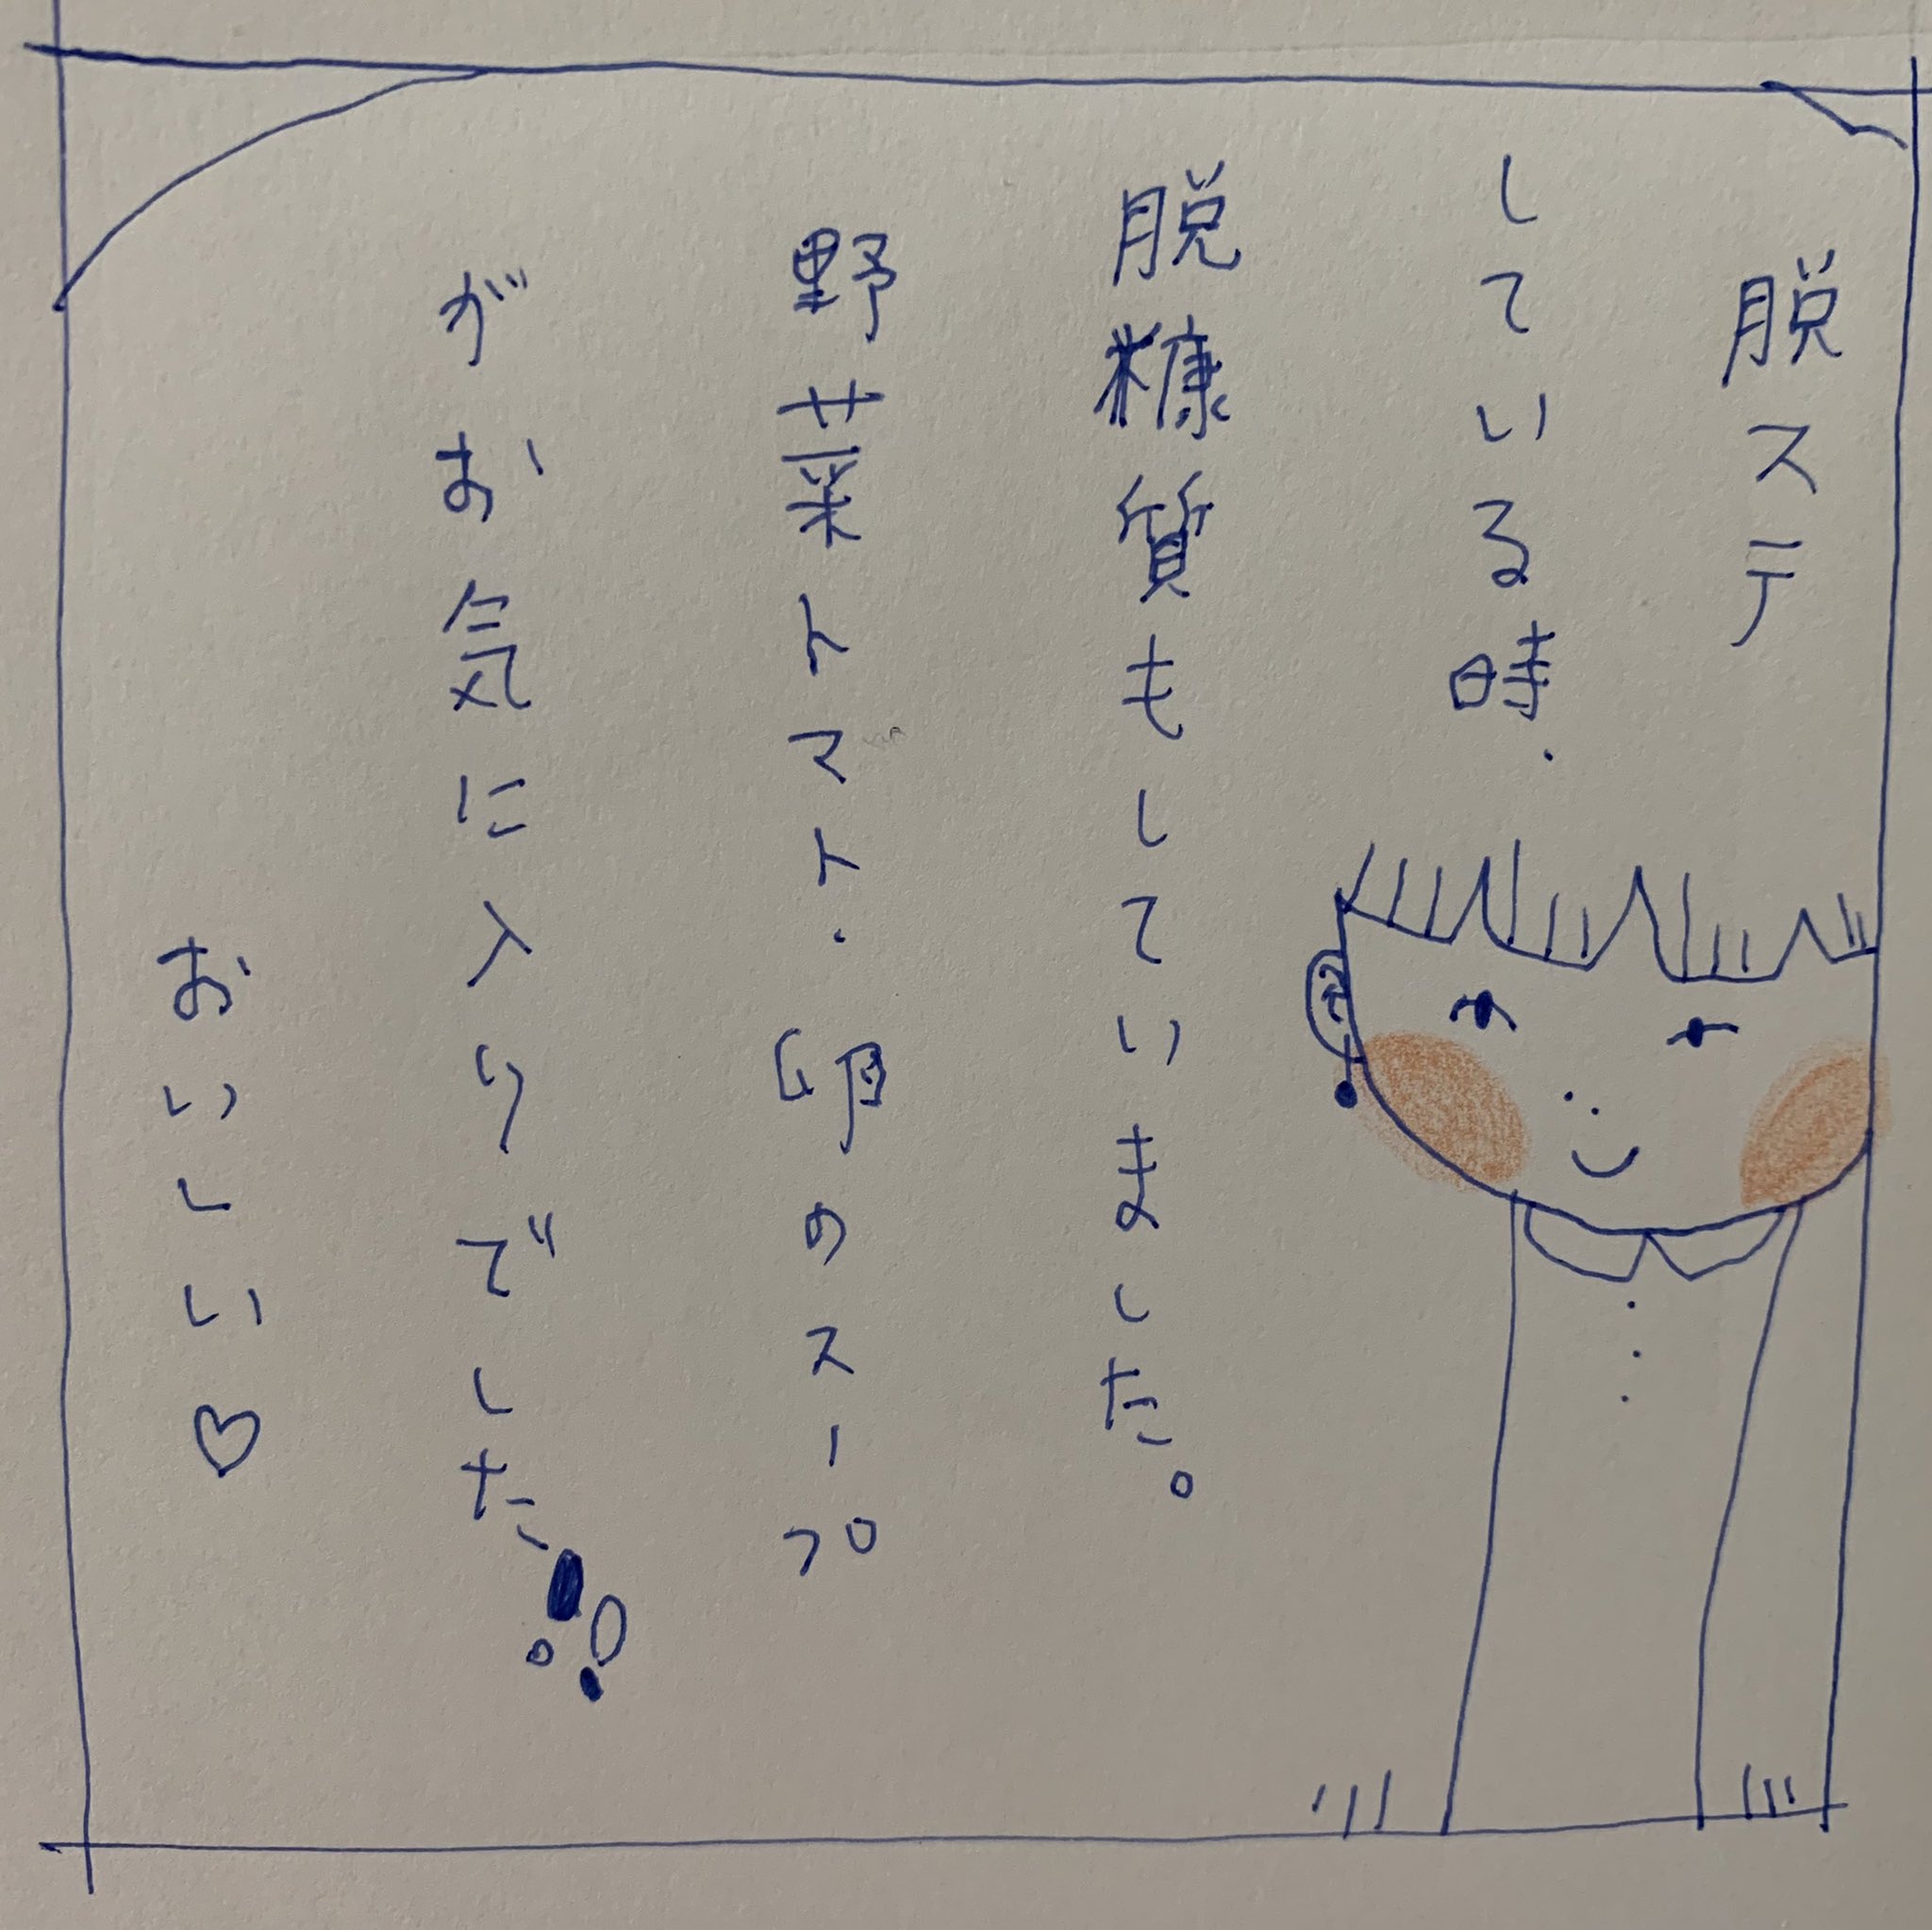 脱ステ
している時、
脱糠質もしていました。
野菜トマト・卵のスープ
がお気に入りでした!!
おいしい♡